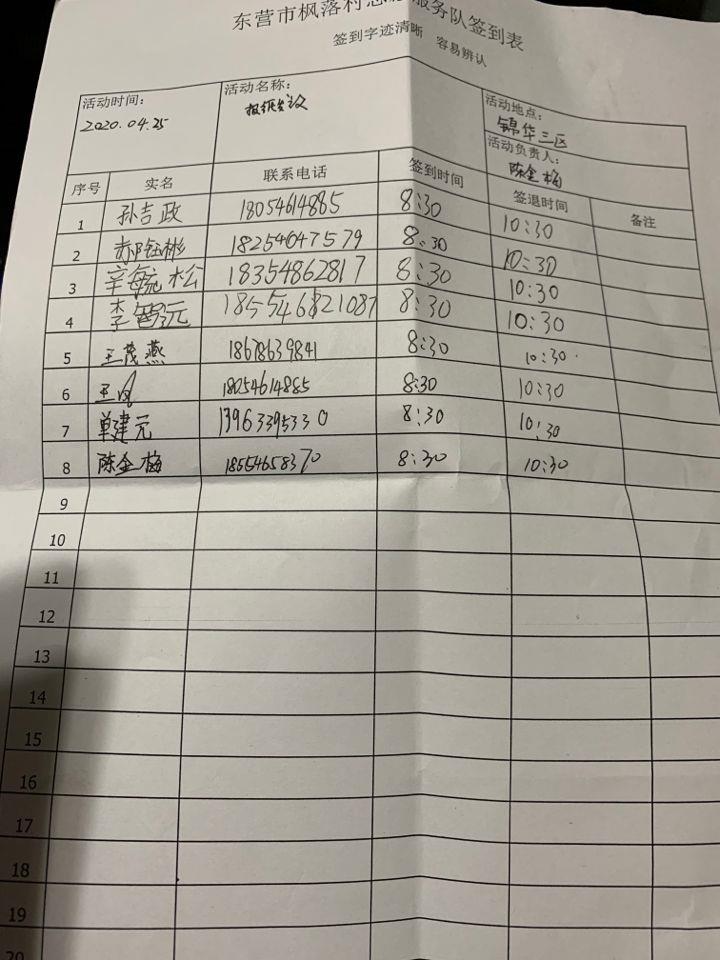 东营市枫落村志愿服务队签到表
签到字迹清晰 容易辨认
活动时间: 活动名称: 活动地点:
2020.04.25 锦华三区
活动负责人:
陈金梅
序号 实名 联系电话 签到时间 签退时间 备注
1 孙吉政 18054614885 8:30 10:30
2 郝钰彬 18254647579 8:30 10:30
3 辛毓松 18354862817 8:30 10:30
4 李智元 185546821087 8:30 10:30
5 王茂燕 18678639841 8:30 10:30
6 18054614885 8:30 10:30
7 单建元 13963395330 8:30 10:30
8 陈金梅 18554658370 8:30 10:30
9
10
11
12
13
14
15
16
17
18
19
20